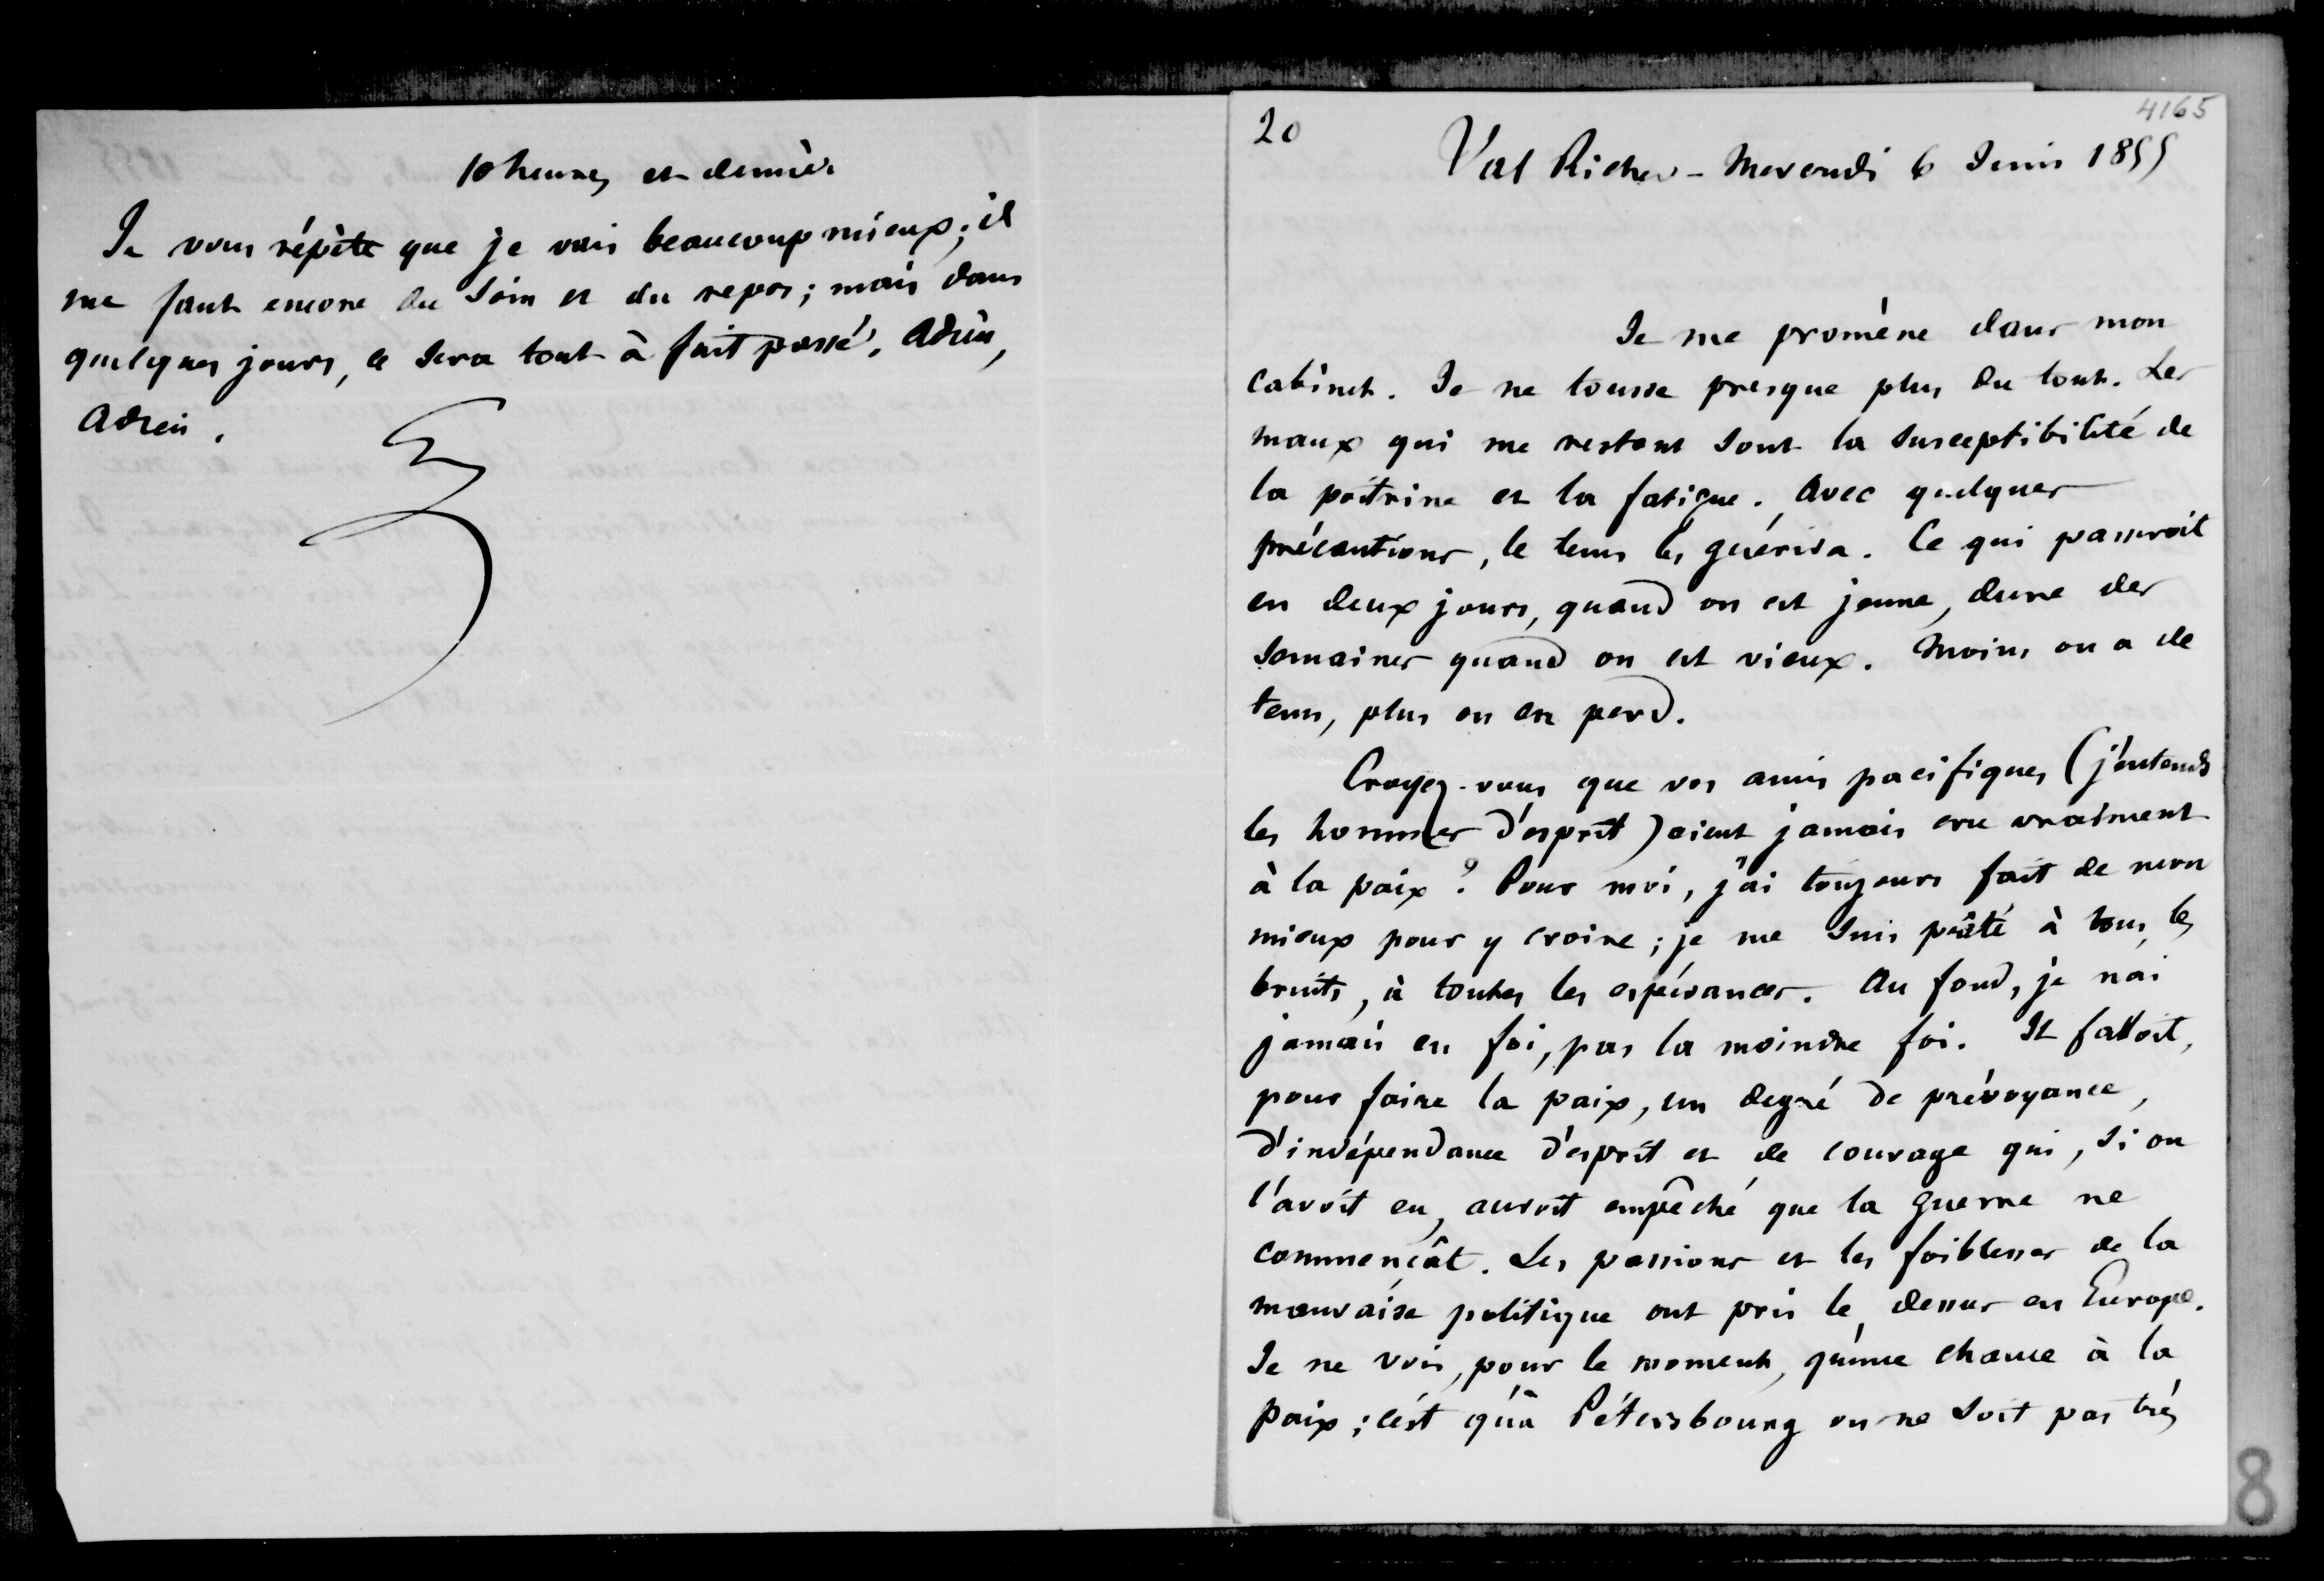 10 heures et demie
Je vous répète que je vais beaucoup mieux ; il
me faut encore du soin et du repos ; mais dans
quelques jours, ce sera tout à fait passé. Adieu,
Adieu.
4165
20
Val Richer - Mercredi 6 Juin 1855
Je me promène dans mon
cabinet. Je ne tousse presque plus du tout. Les
maux qui me restent sont la susceptibilité de
la poitrine et la fatigue. Avec quelques
précautions, le tems les guérira. Ce qui passeroit
en deux jours, quand on est jeune, dure des
semaines quand on est vieux. Moins on a de
tems, plus on en perd.
Croyez-vous que vos amis pacifiques (j'entends
les hommes d'esprit) aient jamais cru vraiment
à la paix ? Pour moi, j'ai toujours fait de mon
mieux pour y croire ; je me suis prêté à tous les
bruits, à toutes les espérances. Au fond, je n'ai
jamais eu foi, pas la moindre foi. Il falloit,
pour faire la paix, un degré de prévoyance,
d'indépendance d'esprit et de courage qui, si on
l'avoit eu, auroit empêché que la guerre ne
commençât. Les passions et les foiblesses de la
mauvaise politique ont pris le dessus en Europe.
Je ne vois, pour le moment, qu'une chance à la
paix ; c'est qu'à Pétersbourg on ne soit pas très
8